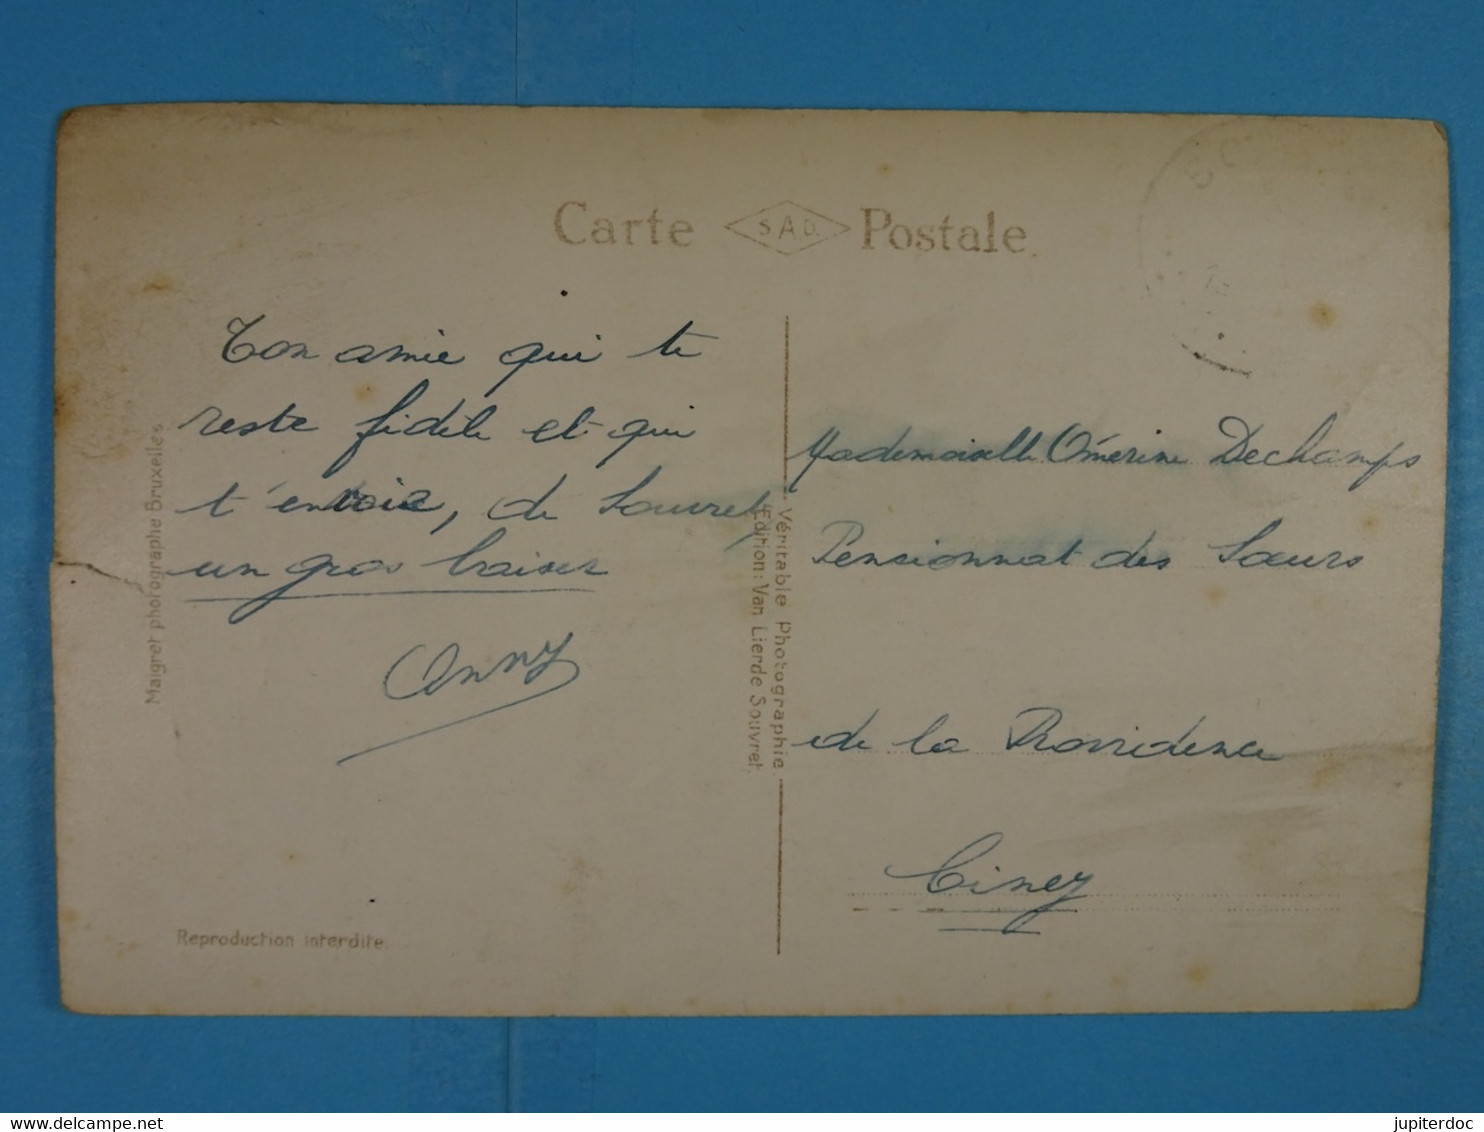 Carte S.A.D. Postale
Ton amie qui te
reste fidèle et qui
t'envoie, de Souvret,
un gros baiser
Anny
Maigret photographe Bruxelles.
Reproduction interdite.
Véritable Photographie.
Edition: Van Lierde Souvret.
Mademoiselle Omérine Dechamps
Pensionnat des Sœurs
de la Providence
Ciney
jupiterdoc
delcampe.net